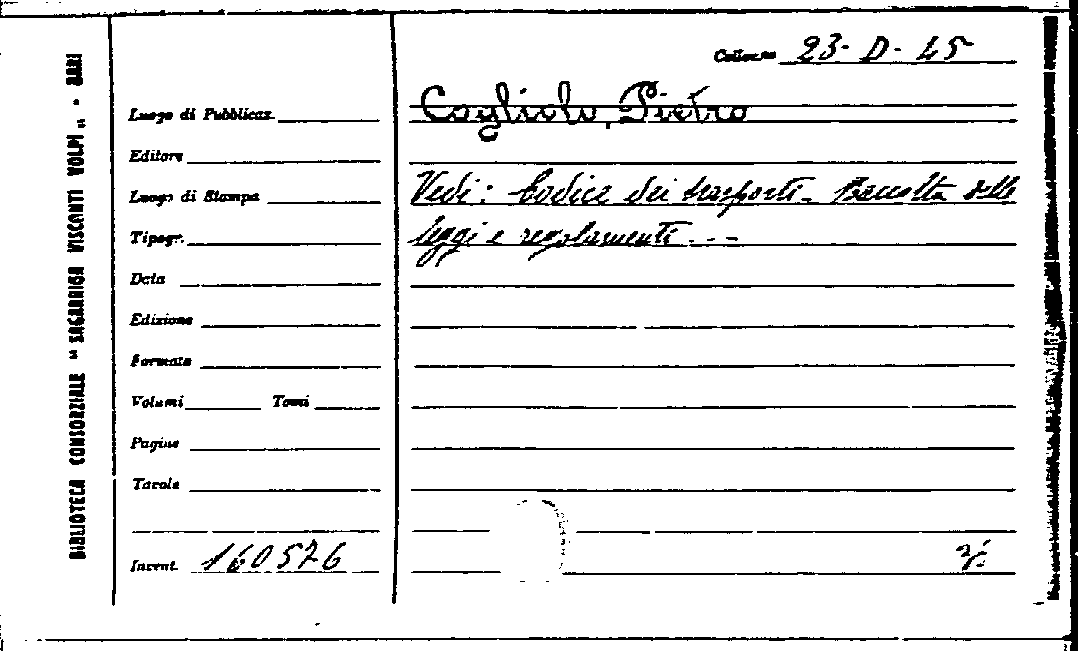 BIBLIOTECA CONSORZIALE "SAGARRIGA VISCONTI VOLPI" - BARI
Collocaz. 23-D-45
Cogliolo, Pietro
Luogo di Pubblicaz.
Editore
Vedi: Codice dei trasporti - Raccolta delle
Luogo di Stampa
leggi e regolamenti...-
Tipogr.
Data
Edizione
Formato
Volumi Tomi
Pagine
Tavole
Invent. 160576